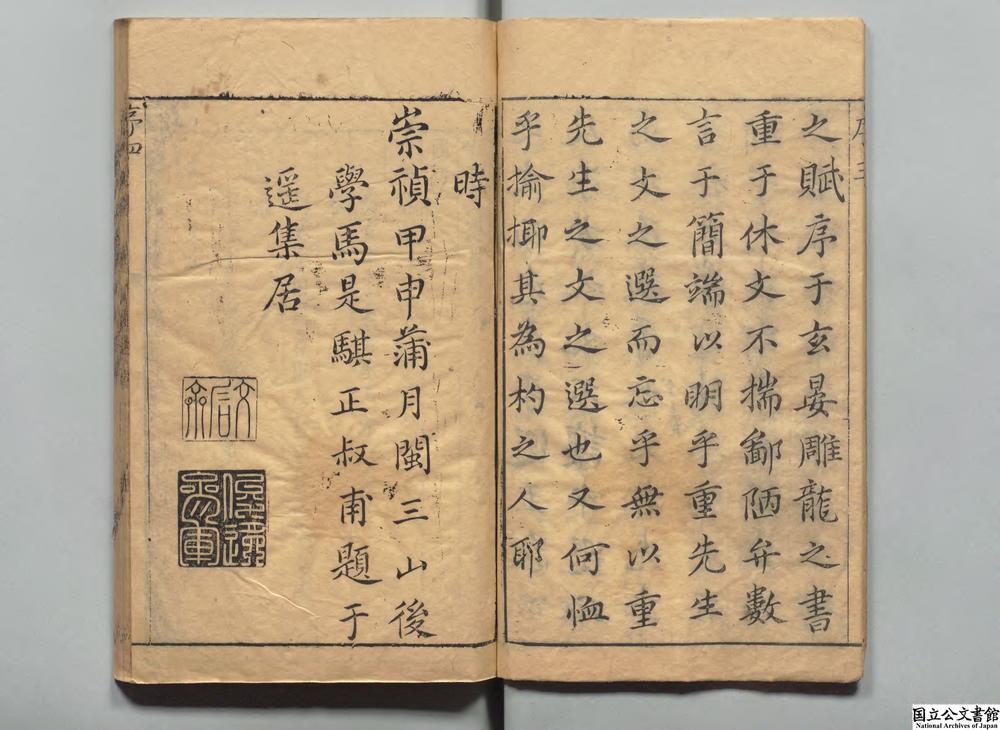 序三
之賦序于玄晏雕龍之書
重于休文不揣鄙陋弁數
言于簡端以明乎重先生
之文之選而忘乎無以重
先生之文之選也又何恤
乎揄揶其為杓之人耶
時
崇禎甲申蒲月閩三山後
學馬是騏正叔甫題于
遥集居
序四
国立公文書館
National Archives of Japan